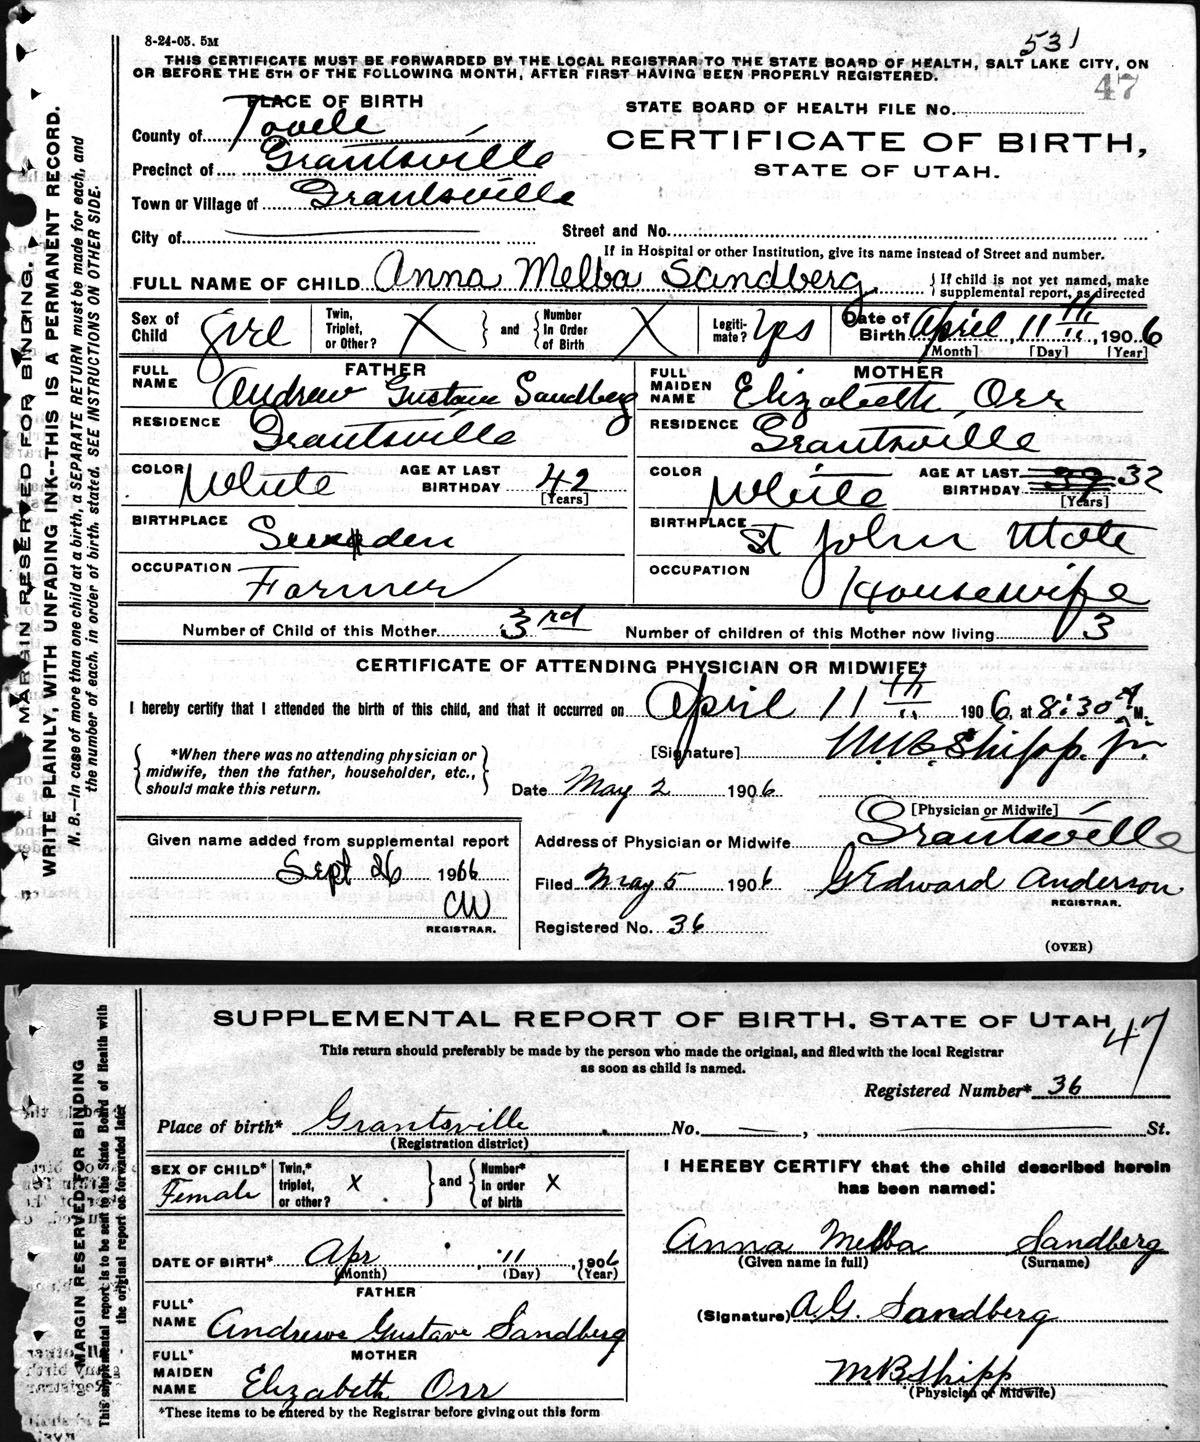 8-24-05. 5M
531
THIS CERTIFICATE MUST BE FORWARDED BY THE LOCAL REGISTRAR TO THE STATE BOARD OF HEALTH, SALT LAKE CITY, ON
OR BEFORE THE 5TH OF THE FOLLOWING MONTH, AFTER FIRST HAVING BEEN PROPERLY REGISTERED.
47
PLACE OF BIRTH
STATE BOARD OF HEALTH FILE No.
County of Tooele
CERTIFICATE OF BIRTH,
Precinct of Grantsville
STATE OF UTAH.
Town or Village of Grantsville
City of
Street and No.
If in Hospital or other Institution, give its name instead of Street and number.
FULL NAME OF CHILD Anna Melba Sandberg
If child is not yet named, make
supplemental report, as directed
Sex of Child girl Twin, Triplet, or Other? X and Number In Order of Birth X Legitimate? yes Date of Birth April 11th, 1906
[Month] [Day] [Year]
FATHER
FULL NAME Andrew Gustave Sandberg
RESIDENCE Grantsville
COLOR White AGE AT LAST BIRTHDAY 42
[Years]
BIRTHPLACE Sweden
OCCUPATION Farmer
MOTHER
FULL MAIDEN NAME Elizabeth Orr
RESIDENCE Grantsville
COLOR White AGE AT LAST BIRTHDAY 39 32
[Years]
BIRTHPLACE St John Utah
OCCUPATION Housewife
Number of Child of this Mother 3rd Number of children of this Mother now living 3
CERTIFICATE OF ATTENDING PHYSICIAN OR MIDWIFE*
I hereby certify that I attended the birth of this child, and that it occurred on April 11th 1906, at 8:30 A M.
*When there was no attending physician or
midwife, then the father, householder, etc.,
should make this return.
[Signature] M.B. Shipp. jr.
Date May 2 1906
[Physician or Midwife]
Given name added from supplemental report
Sept 26 1906
CW
REGISTRAR.
Address of Physician or Midwife Grantsville
Filed May 5 1906 G Edward Anderson
REGISTRAR.
Registered No. 36
(OVER)
MARGIN RESERVED FOR BINDING.
WRITE PLAINLY, WITH UNFADING INK--THIS IS A PERMANENT RECORD.
N. B.—In case of more than one child at a birth, a SEPARATE RETURN must be made for each, and
the number of each, in order of birth, stated. SEE INSTRUCTIONS ON OTHER SIDE.
SUPPLEMENTAL REPORT OF BIRTH. STATE OF UTAH
47
This return should preferably be made by the person who made the original, and filed with the local Registrar
as soon as child is named.
Registered Number* 36
Place of birth* Grantsville No. , St.
(Registration district)
SEX OF CHILD* Female Twin,* triplet, or other? X and Number* in order of birth X
DATE OF BIRTH* Apr 11, 1906
(Month) (Day) (Year)
FATHER
FULL* NAME Andrewe Gustave Sandberg
MOTHER
FULL* MAIDEN NAME Elizabeth Orr
*These items to be entered by the Registrar before giving out this form
I HEREBY CERTIFY that the child described herein
has been named:
Anna Melba Sandberg
(Given name in full) (Surname)
(Signature) A.G. Sandberg
M B Shipp
(Physician or Midwife)
MARGIN RESERVED FOR BINDING
This supplemental report is to be sent to the State Board of Health with
the original report or forwarded later